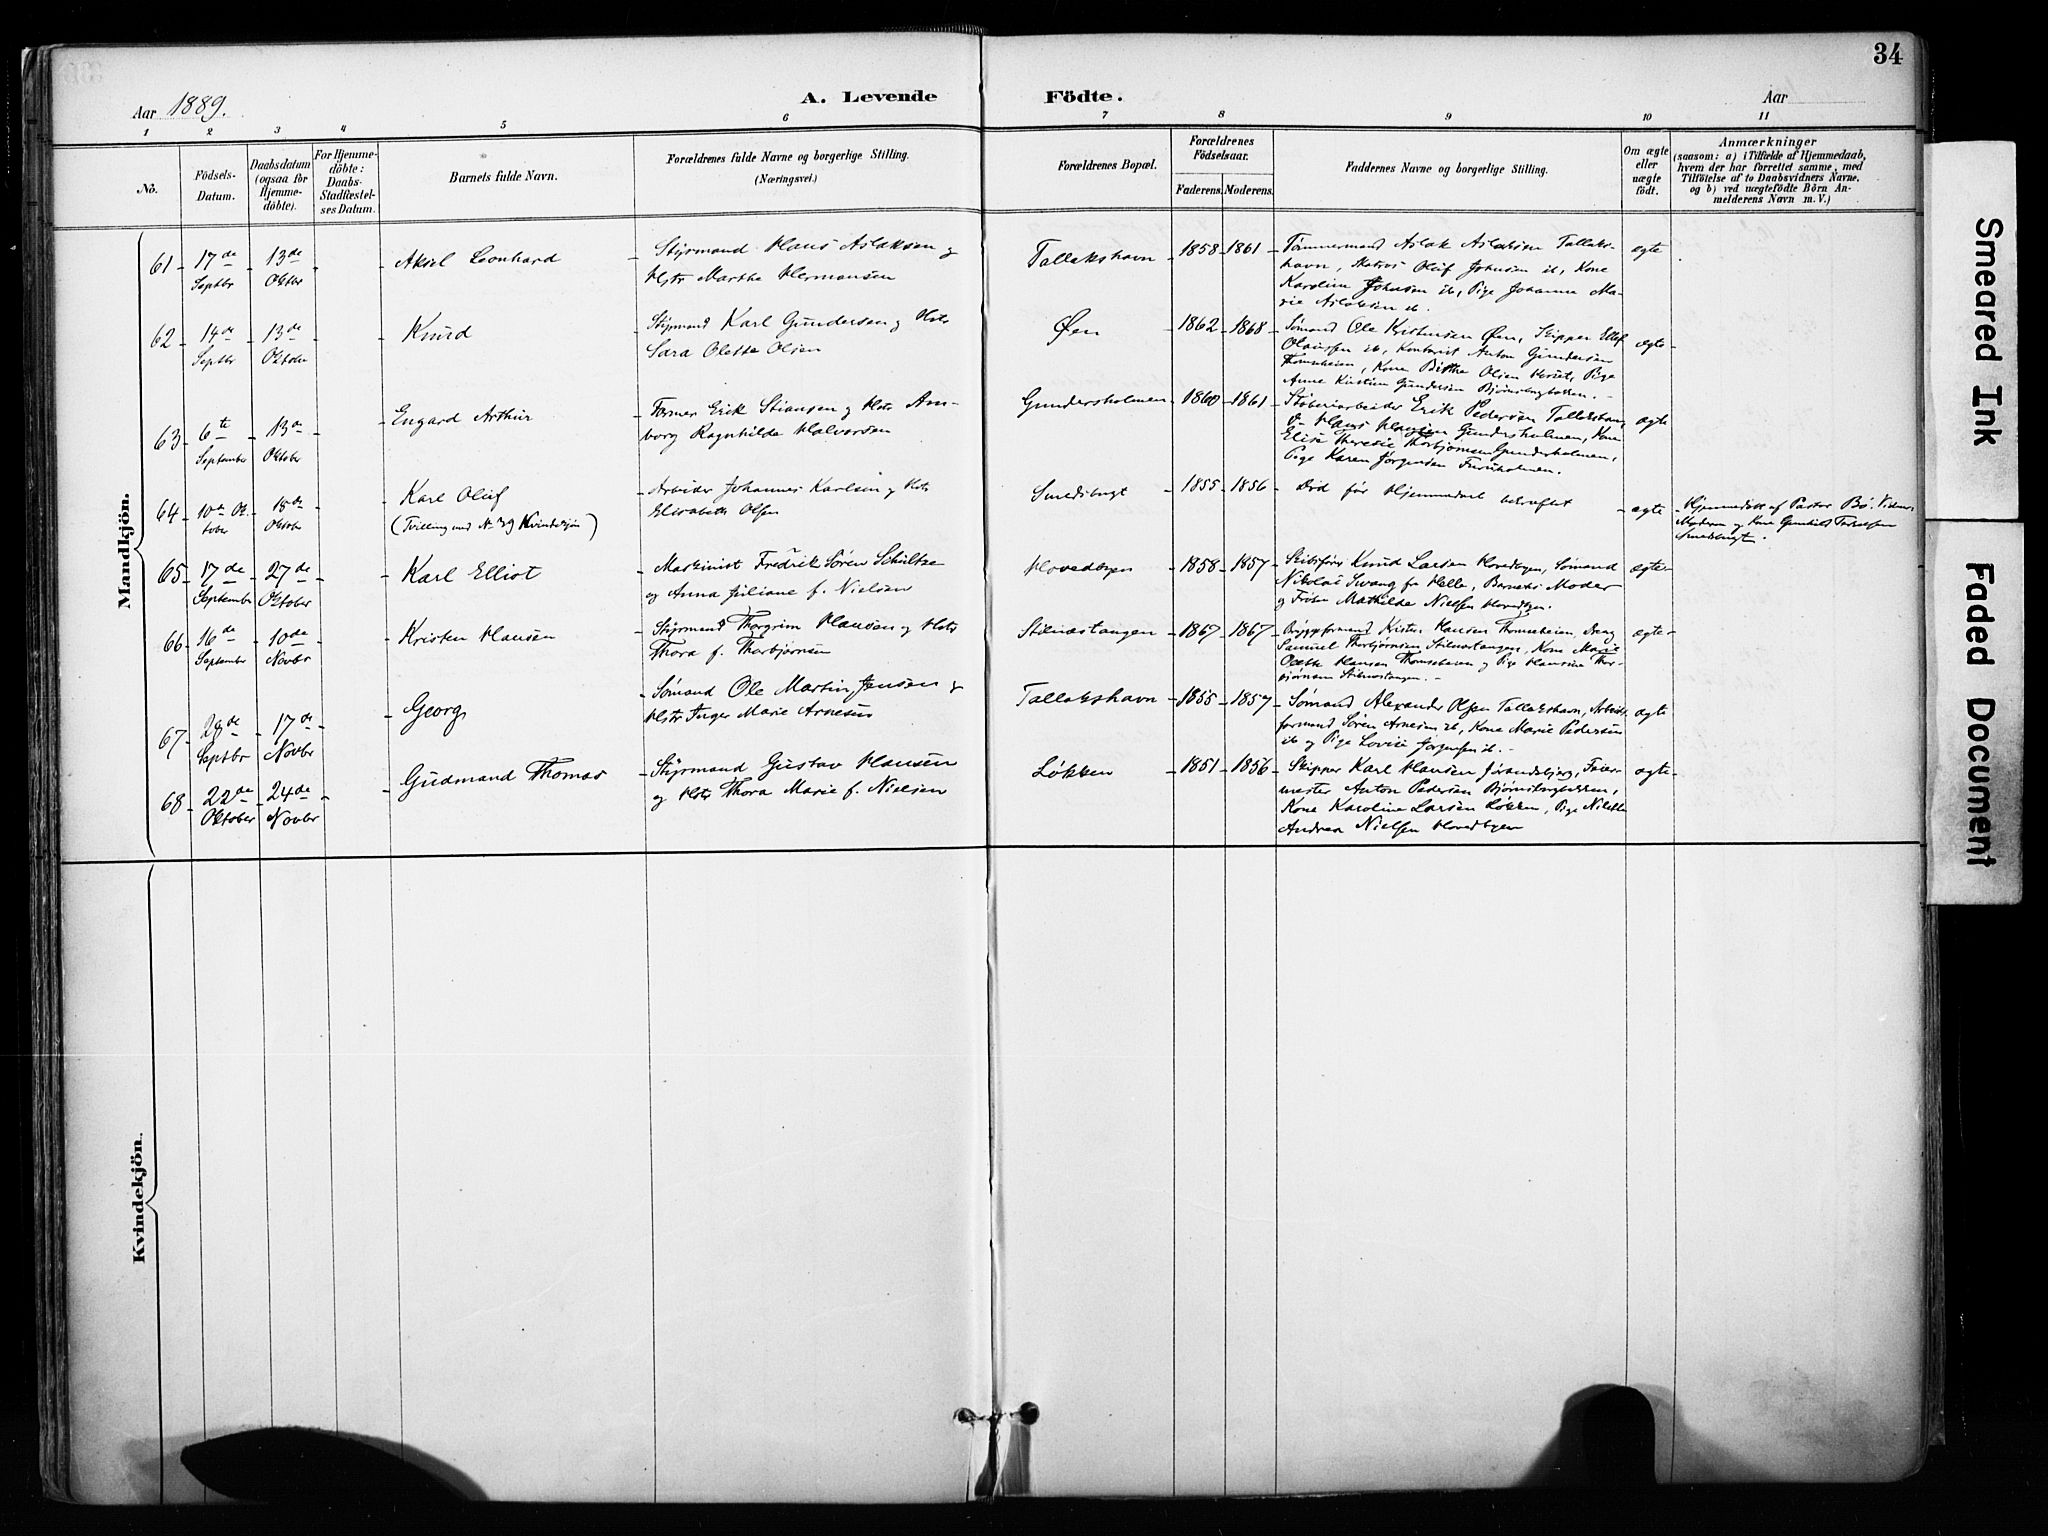 34
Aar 1889.
A. Levende Födte.
Aar
1 2 3 4 5 6 7 8 9 10 11
No.
Födsels-
Datum.
Daabsdatum
(ogsaa for
Hjemme-
döbte).
For Hjemme-
döbte:
Daabs-
Stadfæstel-
ses Datum.
Barnets fulde Navn.
Forældrenes fulde Navne og borgerlige Stilling.
(Næringsvei.)
Forældrenes Bopæl.
Forældrenes
Födselsaar.
Faderens. Moderens.
Faddernes Navne og borgerlige Stilling.
Om ægte
eller
uægte
födt.
Anmærkninger
(saasom: a) i Tilfælde af Hjemmedaab,
hvem der har forrettet samme, med
Tilföielse af to Daabsvidners Navne,
og b) ved uægtefödte Börn An-
melderens Navn m. V.)
Mandkjön.
61 17de Septbr 13de Oktbr
Aksel Leonhard
Styrmand Hans Aslaksen og
Hstr Marthe Hermansen
Tallakshavn 1858 1861
Tømmermand Aslak Aslaksen Tallaks-
havn, Matros Oluf Johnsen ib, Kone
Karoline Johnsen ib, Pige Johanne Ma-
rie Aslaksen ib.
ægte
62 14de Septbr 13de Oktober
Knud
Styrmand Karl Gundersen og Hstr
Sara Olette Olsen
Øen 1862 1868
Sømand Ole Kristensen Øen, Skipper Ellef
Olaussen ib, Kontorist Anton Gundersen
Thomsheien, Kone Birthe Olsen, Pige
Anne Kirstine Gundersen Bjørnsbogbakken.
ægte
63 6te September 13de Oktober
Engard Arthur
Former Erik Stiansen og Hstr Am-
borg Ragnhilde Halvorsen
Gundersholmen 1860 1861
Støberiarbeider Erik Pedersen Tallakshavn,
Hans Hansen Gundersholmen, Kone
Elise Theresie Thorbjørnsen Gundersholmen,
Pige Karen Jørgensen Furuholmen.
ægte
64 10de Ok-
tober 18de Oktober
Karl Oluf
(Tvilling med No 39 Kvindekjøn)
Arbeider Johannes Karlsen og Hstr
Elisabeth Olsen
Smedsbugt 1855 1856
Død før Hjemmedaab bekræftet
ægte
Hjemmedøbt af Pastor Bø. Vidner
Moderen og Kone Gunhild
Smedsbugt.
65 17de September 27de Oktober
Karl Elliot
Maskinist Fredrik Søren Schultze
og Anna Juliane f. Nielsen
Hovedbyen 1858 1857
Skibsfører Knud Larsen Hovedbyen, Sømand
Nikolai Svang fr Helle, Barnets Moder
og Frøken Mathilde Nielsen Hovedbyen.
ægte
66 16de September 10de Novbr
Kristen Hansen
Styrmand Thorgrim Hansen og Hstr
Thora f. Thorbjørnsen
Stilnæstangen 1867 1867
Kristen Hansen Thomsheien, Dreng
Samuel Thorbjørnsen Stilnæstangen, Kone Marie
Olette Hansen Thomshavn og Pige Hansine Thor-
bjørnsen Stilnæstangen.
ægte
67 28de Septbr 17de Novbr
Georg
Sømand Ole Martin Jensen og
Hstr Inger Marie Arnesen
Tallakshavn 1855 1857
Sømand Alexander Olsen Tallakshavn, Arbeids-
formand Søren Arnesen ib, Kone Marie Pedersen
ib og Pige Lovise Jørgensen ib.
ægte
68 22de Oktober 24de Novbr
Gudmand Thomas
Styrmand Gustav Hansen
og Hstr Thora Marie f. Nielsen
Løkken 1851 1856
Skipper Karl Hansen Jørandsbjerg, Feier-
mester Anton Pedersen Bjørnsbogbakken,
Kone Karoline Larsen Løkken, Pige Nilette
Andrea Nielsen Hovedbyen
ægte
Kvindekjön.
Smeared Ink
Faded Document